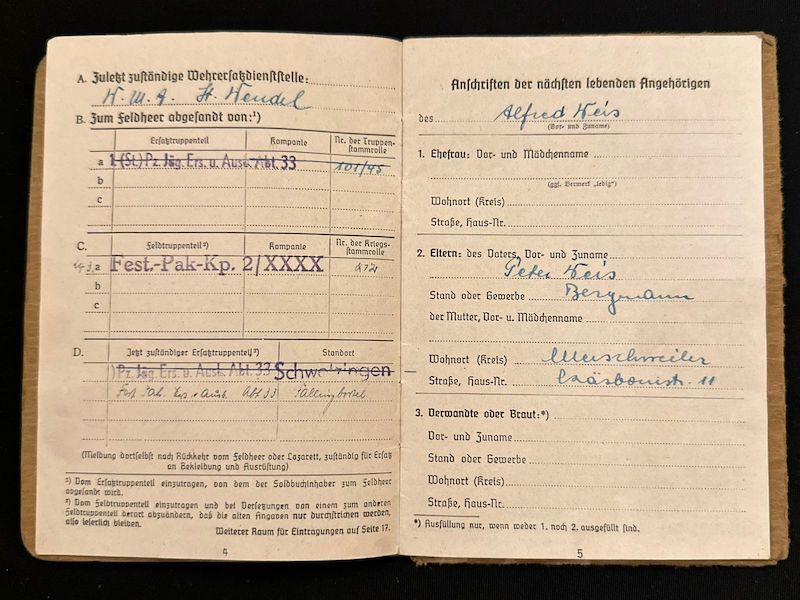 A. Zuletzt zuständige Wehrersatzdienststelle:
W. M. A. St. Wendel
B. Zum Feldheer abgesandt von:¹)
Ersatztruppenteil Kompanie Nr. der Truppenstammrolle
a 1 (St.) Pz. Jäg. Ers. u. Ausb. Abt. 33 101/45
b
c
C. Feldtruppenteil²) Kompanie Nr. der Kriegsstammrolle
a Fest.-Pak-Kp. 2/XXXX
b
c
D. Jetzt zuständiger Ersatztruppenteil²) Standort
Pz. Jäg. Ers. u. Ausb. Abt. 33 Schwetzingen
Ers. u. Ausb. Abt 33 Fallingbostel
(Meldung dortselbst nach Rückkehr vom Feldheer oder Lazarett, zuständig für Ersatz
an Bekleidung und Ausrüstung)
¹) Vom Ersatztruppenteil einzutragen, von dem der Soldbuchinhaber zum Feldheer
abgesandt wird.
²) Vom Feldtruppenteil einzutragen und bei Versetzungen von einem zum anderen
Feldtruppenteil derart abzuändern, daß die alten Angaben nur durchstrichen werden,
also leserlich bleiben.
Weiterer Raum für Eintragungen auf Seite 17.
4
Anschriften der nächsten lebenden Angehörigen
des Alfred Weis
(Vor- und Zuname)
1. Ehefrau: Vor- und Mädchenname
(ggf. Vermerk „ledig“)
Wohnort (Kreis)
Straße, Haus-Nr.
2. Eltern: des Vaters, Vor- und Zuname
Peter Weis
Stand oder Gewerbe Bergmann
der Mutter, Vor- u. Mädchenname
Wohnort (Kreis)
Straße, Haus-Nr. 11
3. Verwandte oder Braut:*)
Vor- und Zuname
Stand oder Gewerbe
Wohnort (Kreis)
Straße, Haus-Nr.
*) Ausfüllung nur, wenn weder 1. noch 2. ausgefüllt sind.
5